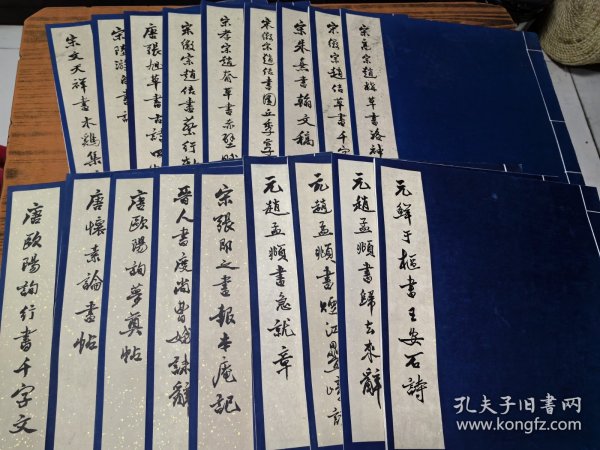 宋文天祥書木鷄集
宋陸游
唐張旭草書古詩四
宋徽宗趙佶書蔡行
宋孝宗趙眘草書赤壁
宋徽宗趙佶書圓丘季享
宋朱熹書翰文稿
宋徽宗趙佶草書千字
宋高宗趙構草書洛神
唐歐陽詢行書千字文
唐懷素論書帖
唐歐陽詢夢奠帖
晉人書度尚曹娥誄辭
宋張即之書報本庵記
元趙孟頫書急就章
元趙孟頫書煙江疊嶂詩
元趙孟頫書歸去來辭
元鮮于樞書王安石詩
孔夫子旧书网
www.kongfz.com